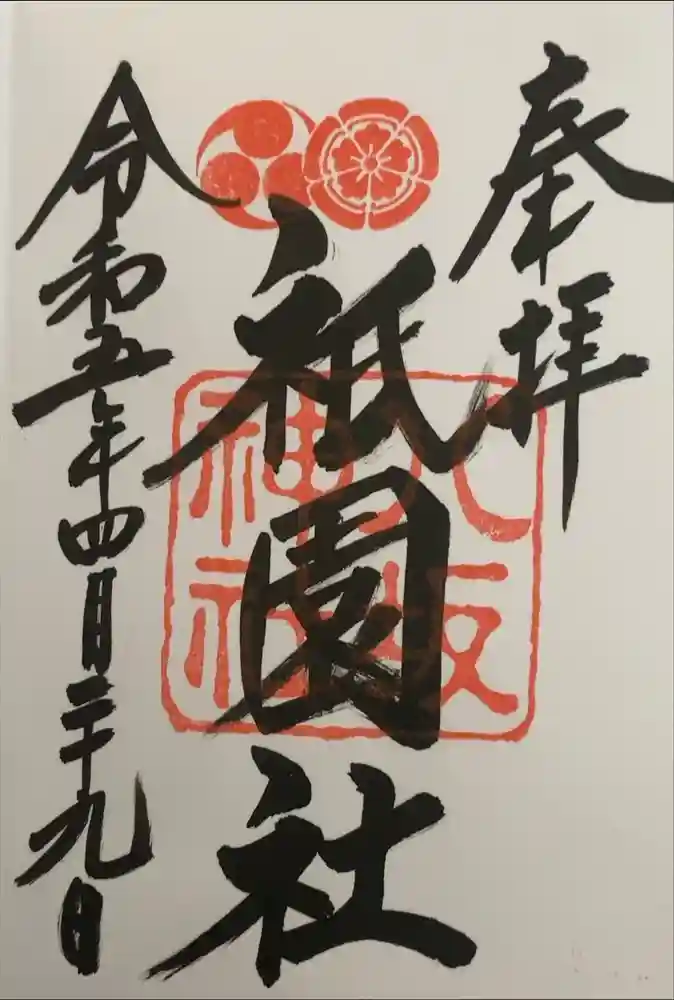 奉拝
八坂
神社
祇園社
令和五年四月二十九日